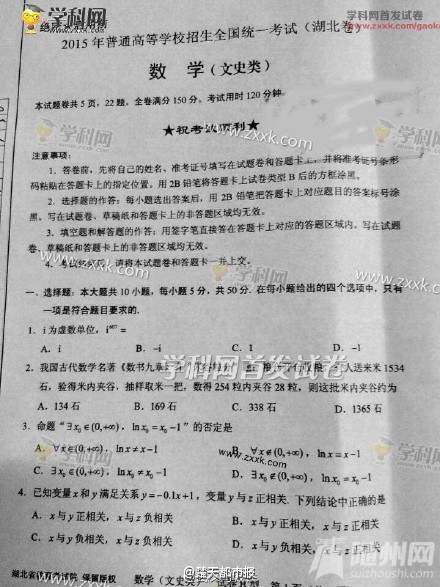 学科网
www.zxxk.com
学科网高考
http://www.zxxk.com/gaoko
绝
2015年普通高等学校招生全国统一考试（湖北卷）
数 学（文史类）
本试题卷共5页，22题。全卷满分150分。考试用时120分钟。
★祝考试顺利★
注意事项：
1．答卷前，先将自己的姓名、准考证号填写在试题卷和答题卡上，并将准考证号条形
码粘贴在答题卡上的指定位置。用2B铅笔将答题卡上试卷类型B后的方框涂黑。
2．选择题的作答：每小题选出答案后，用2B铅笔把答题卡上对应题目的答案标号涂
黑。写在试题卷、草稿纸和答题卡上的非答题区域均无效。
3．填空题和解答题的作答：用签字笔直接答在答题卡上对应的答题区域内。写在试题
卷、草稿纸和答题卡上的非答题区域均无效。
4．考试结束后，请将本试题卷和答题卡一并上交。
一、选择题：本大题共10小题，每小题5分，共50分．在每小题给出的四个选项中，只有
一项是符合题目要求的．
1．i为虚数单位，i⁶⁰⁷=
A．i B．-i C．1 D．-1
学科网首发试卷
2．我国古代数学名著《数书九章》 人送来米1534
石，验得米内夹谷，抽样取米一把，数得254粒内夹谷28粒，则这批米内夹谷约为
A．134石 B．169石 C．338石 D．1365石
3．命题“∃x₀∈(0,+∞)，ln x₀ = x₀ -1”的否定是
A．∀x∈(0,+∞)，ln x ≠ x -1 B．∀x∉(0,+∞)，ln x = x -1
C．∃x₀∈(0,+∞)，ln x₀ ≠ x₀ -1 D．∃x₀∉(0,+∞)，ln x₀ = x₀ -1
4．已知变量x和y满足关系y=-0.1x+1，变量y与z正相关．下列结论中正确的是
A．x与y正相关，x与z负相关 B．x与y正相关，x与z正相关
C．x与y负相关，x与z负相关 D．x与y负相关，x与z正相关
湖北省教育考试院 保留版权 数学（文史类） 试卷B
@楚天都市报
随州网